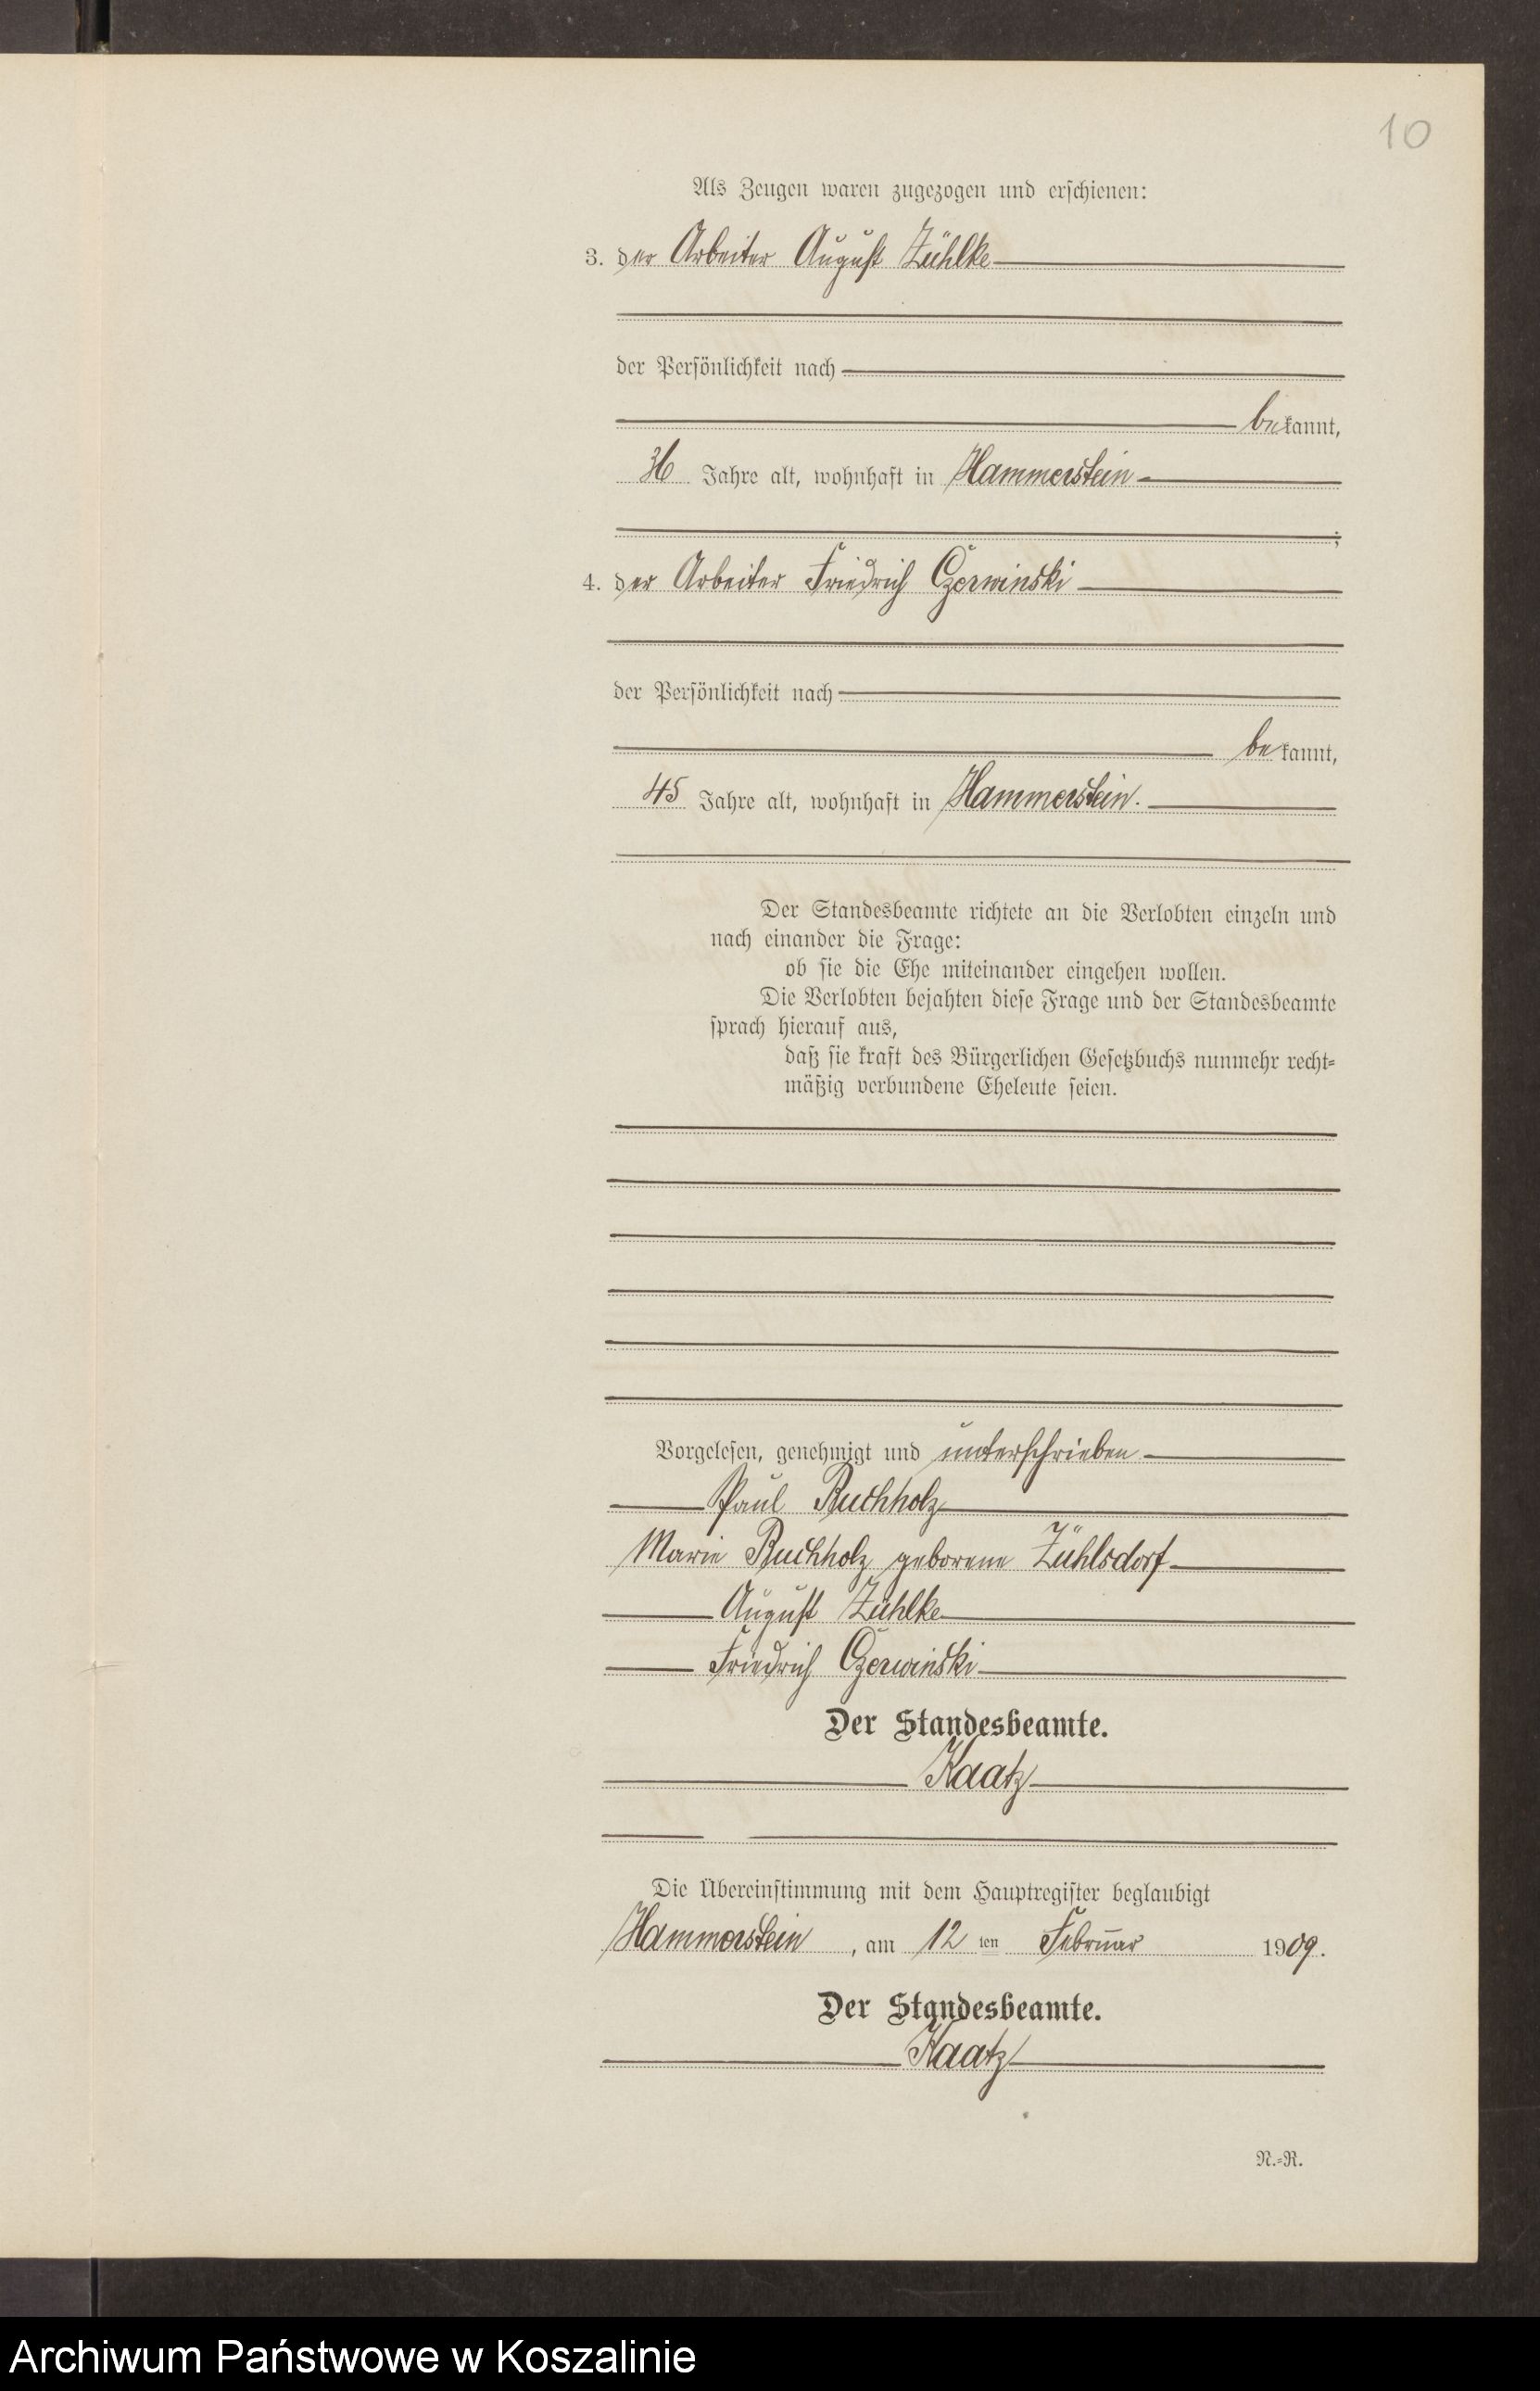 10
Als Zeugen waren zugezogen und erschienen:
3. der Arbeiter August Zühlke
der Persönlichkeit nach
bekannt,
36 Jahre alt, wohnhaft in Hammerstein
;
4. der Arbeiter Friedrich Czerwinski
der Persönlichkeit nach
bekannt,
45 Jahre alt, wohnhaft in Hammerstein.
Der Standesbeamte richtete an die Verlobten einzeln und
nach einander die Frage:
ob sie die Ehe miteinander eingehen wollen.
Die Verlobten bejahten diese Frage und der Standesbeamte
sprach hierauf aus,
daß sie kraft des Bürgerlichen Gesetzbuchs nunmehr recht-
mäßig verbundene Eheleute seien.
Vorgelesen, genehmigt und unterschrieben
Paul Buchholz
Marie Buchholz geborene Zühlsdorf
August Zühlke
Friedrich Czerwinski
Der Standesbeamte.
Kaatz
Die Übereinstimmung mit dem Hauptregister beglaubigt
Hammerstein, am 12 ten Februar 1909.
Der Standesbeamte.
Kaatz
N.-R.
Archiwum Państwowe w Koszalinie